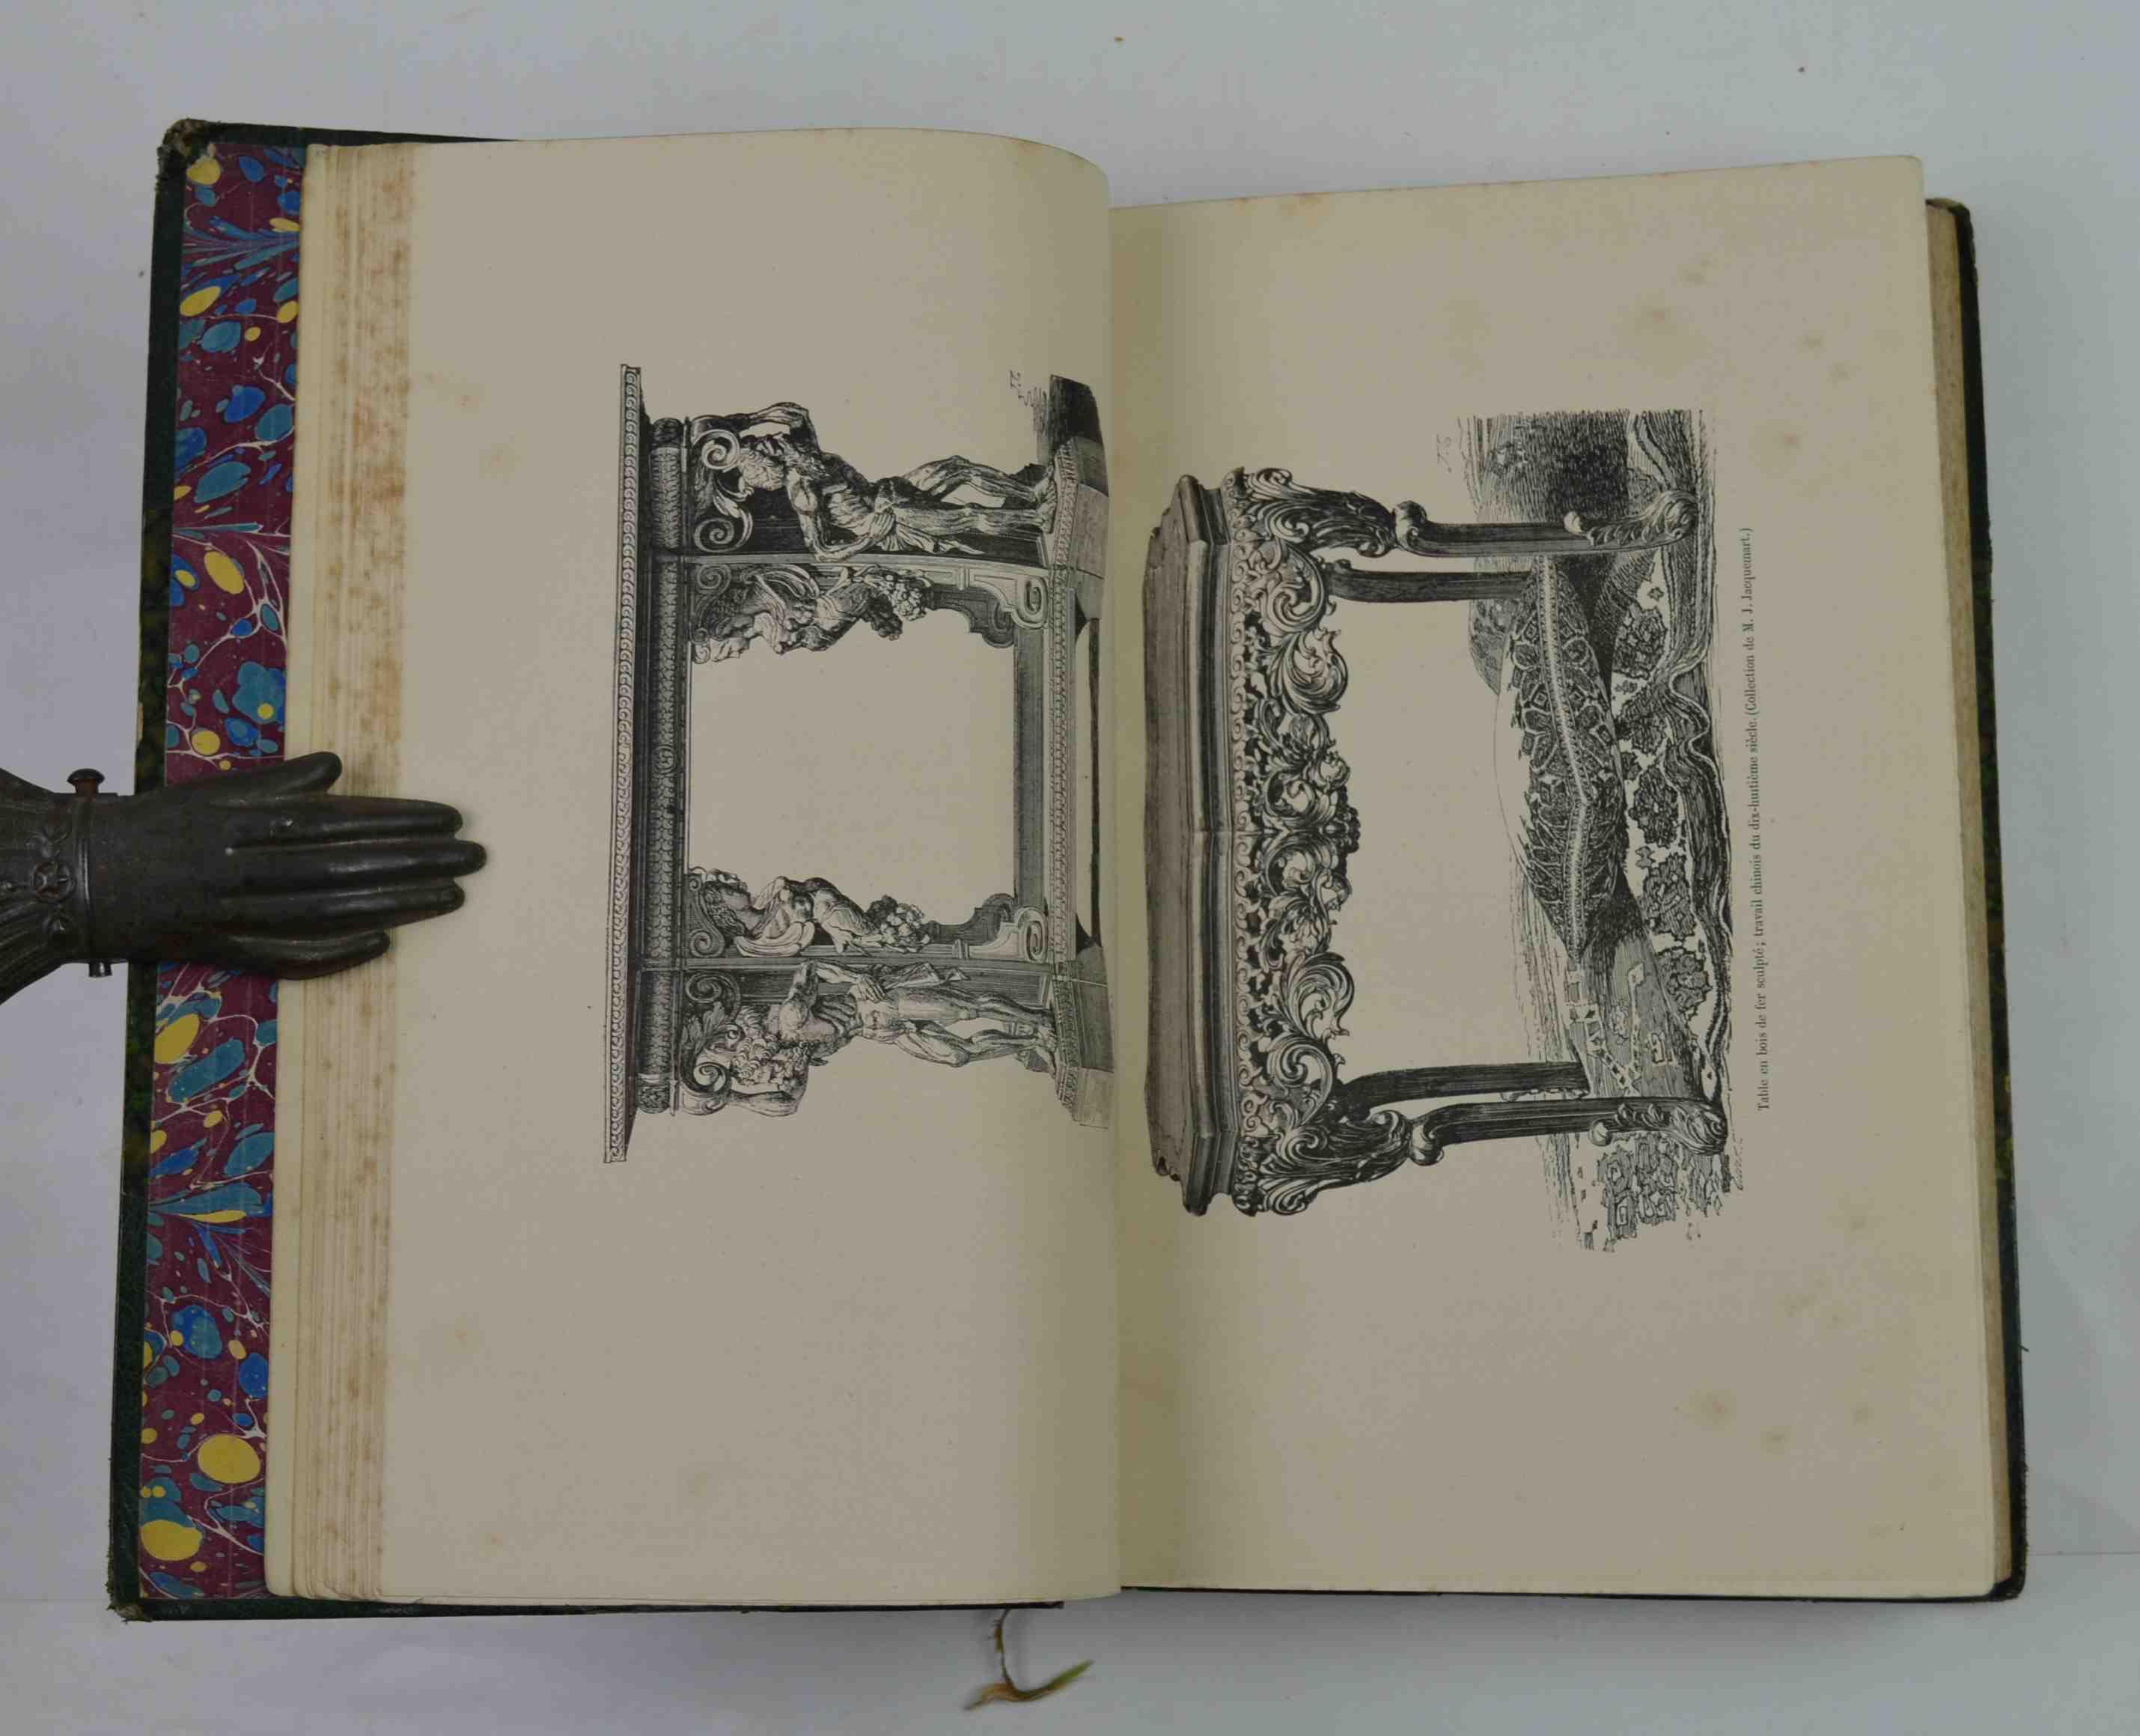 Table en bois de fer sculpté; travail chinois du dix-huitième siècle. (Collection de M. J. Jacquemart.)